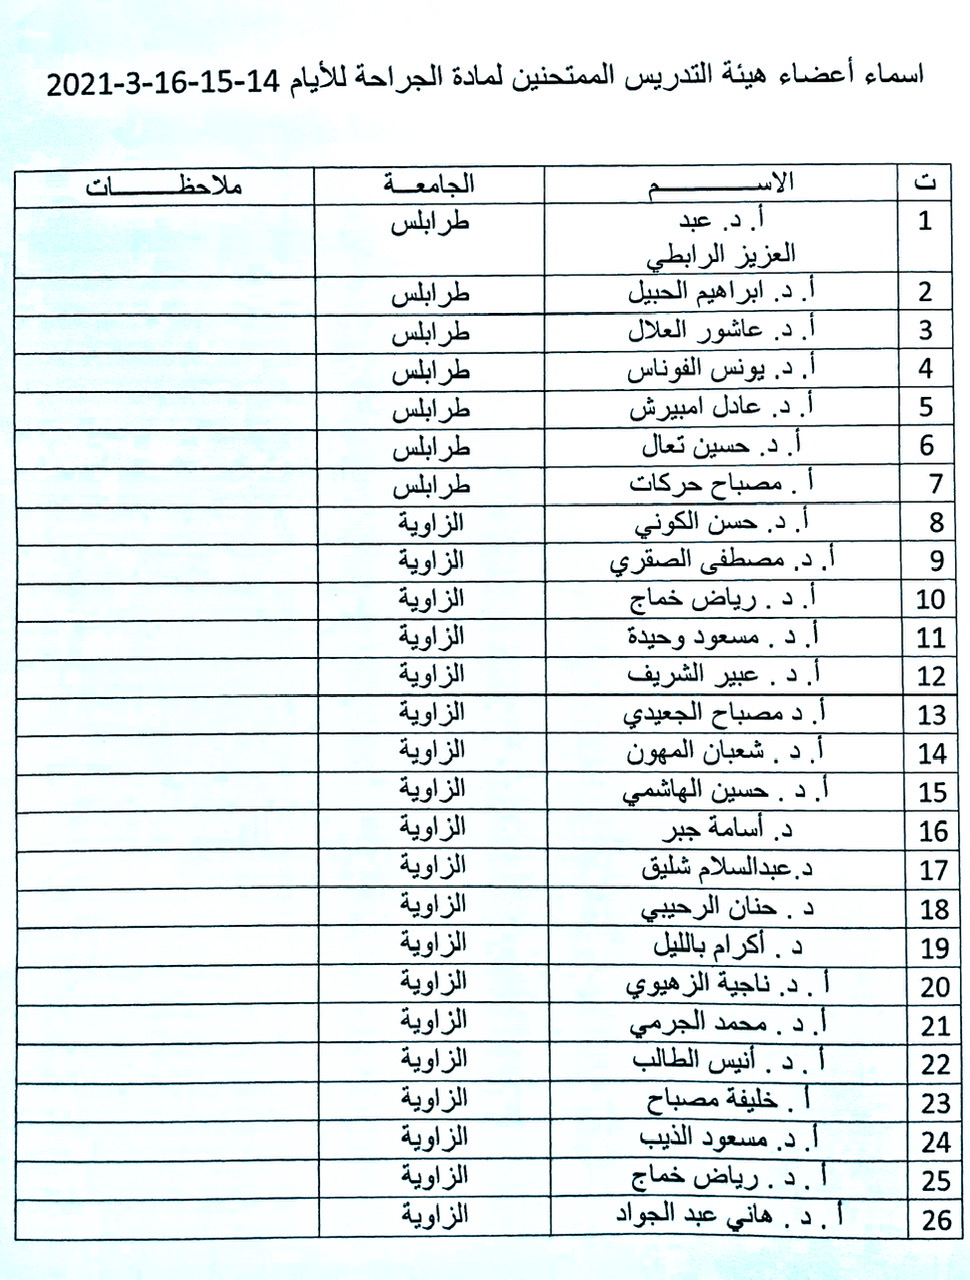 اسماء أعضاء هيئة التدريس الممتحنين لمادة الجراحة للأيام 14-15-16-3-2021
ت الاســـــــــم الجامعـــة ملاحظـــــــــات
1 أ. د. عبد العزيز الرابطي طرابلس
2 أ. د. ابراهيم الحبيل طرابلس
3 أ. د. عاشور العلال طرابلس
4 أ. د. يونس الفوناس طرابلس
5 أ. د. عادل امبيرش طرابلس
6 أ. د. حسين تعال طرابلس
7 أ . مصباح حركات طرابلس
8 أ. د. حسن الكوني الزاوية
9 أ. د. مصطفى الصقري الزاوية
10 أ. د . رياض خماج الزاوية
11 أ. د . مسعود وحيدة الزاوية
12 أ. د . عبير الشريف الزاوية
13 أ. د مصباح الجعيدي الزاوية
14 أ. د . شعبان المهون الزاوية
15 أ. د . حسين الهاشمي الزاوية
16 د. أسامة جبر الزاوية
17 د.عبدالسلام شليق الزاوية
18 د . حنان الرحيبي الزاوية
19 د . أكرام بالليل الزاوية
20 أ . د. ناجية الزهيوي الزاوية
21 أ. د . محمد الجرمي الزاوية
22 أ . د . أنيس الطالب الزاوية
23 أ . خليفة مصباح الزاوية
24 أ. د. مسعود الذيب الزاوية
25 أ . د . رياض خماج الزاوية
26 أ . د . هاني عبد الجواد الزاوية